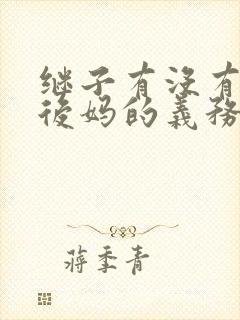 继子有没有
後妈的義務
蒋季青